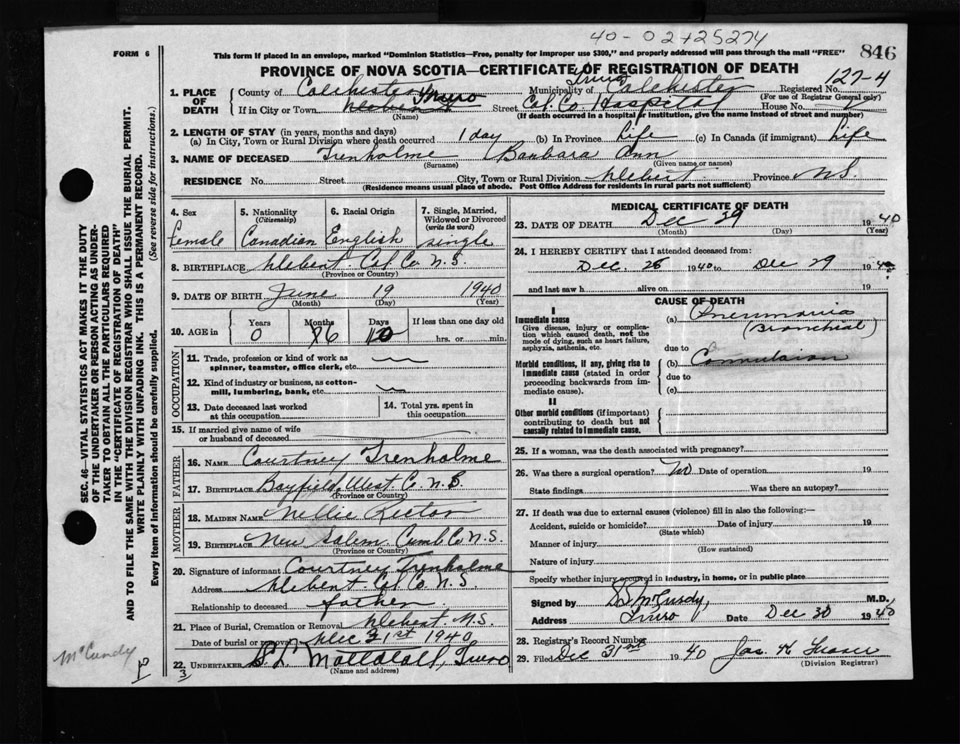 40-02+25274
FORM 6
This form if placed in an envelope, marked "Dominion Statistics—Free, penalty for improper use $300," and properly addressed will pass through the mail "FREE"
846
PROVINCE OF NOVA SCOTIA—CERTIFICATE OF REGISTRATION OF DEATH
127-4
1. PLACE OF DEATH
County of Colchester
Municipality of Truro Colchester
Registered No.
(For use of Registrar General only)
If in City or Town Truro Street Col. Co. Hospital House No.
(Name) (If death occurred in a hospital or institution, give the name instead of street and number)
2. LENGTH OF STAY (in years, months and days)
(a) In City, Town or Rural Division where death occurred 1 day (b) In Province Life (c) In Canada (if immigrant) Life
3. NAME OF DECEASED Trenholme Barbara Ann
(Surname) (Given name or names)
RESIDENCE No. Street City, Town or Rural Division Debert Province N.S.
(Residence means usual place of abode. Post Office Address for residents in rural parts not sufficient)
4. Sex Female
5. Nationality (Citizenship) Canadian
6. Racial Origin English
7. Single, Married, Widowed or Divorced (write the word) single
8. BIRTHPLACE Debert Col. Co. N.S.
(Province or Country)
9. DATE OF BIRTH June 19 1940
(Month) (Day) (Year)
10. AGE in Years Months Days If less than one day old
0 6 10 hrs. or min.
OCCUPATION
11. Trade, profession or kind of work as spinner, teamster, office clerk, etc.
12. Kind of industry or business, as cotton-mill, lumbering, bank, etc.
13. Date deceased last worked at this occupation
14. Total yrs. spent in this occupation
15. If married give name of wife or husband of deceased
FATHER
16. NAME Courtney Trenholme
17. BIRTHPLACE Bayfield, West. Co. N.B.
(Province or Country)
MOTHER
18. MAIDEN NAME Nellie Rector
19. BIRTHPLACE New Salem Cumb Co. N.S.
(Province or Country)
20. Signature of informant Courtney Trenholme
Address Debert Col Co. N.S
Relationship to deceased father
21. Place of Burial, Cremation or Removal Debert N.S.
Date of burial or removal Dec 31st 1940
22. UNDERTAKER Truro
(Name and address)
MEDICAL CERTIFICATE OF DEATH
23. DATE OF DEATH Dec 29 1940
(Month) (Day) (Year)
24. I HEREBY CERTIFY that I attended deceased from:
Dec. 28 1940 to Dec 29 1940
and last saw h alive on 19
CAUSE OF DEATH
I
Immediate cause
Give disease, injury or complication which caused death, not the mode of dying, such as heart failure, asphyxia, asthenia, etc.
(a) Pneumonia (Bronchial)
due to
Morbid conditions, if any, giving rise to immediate cause (stated in order proceeding backwards from immediate cause).
(b) Convulsion
due to
(c)
II
Other morbid conditions (if important) contributing to death but not causally related to immediate cause.
25. If a woman, was the death associated with pregnancy?
26. Was there a surgical operation? No Date of operation 19
State findings Was there an autopsy?
27. If death was due to external causes (violence) fill in also the following:—
Accident, suicide or homicide? Date of injury 19
(State which)
Manner of injury
(How sustained)
Nature of injury
Specify whether injury occurred in industry, in home, or in public place
Signed by D.S. McCurdy, M.D.
Address Truro Date Dec 30 1940
28. Registrar's Record Number
29. Filed Dec 31st 1940 Jas. K Fraser
(Division Registrar)
SEC. 46—VITAL STATISTICS ACT MAKES IT THE DUTY OF THE UNDERTAKER OR PERSON ACTING AS UNDERTAKER TO OBTAIN ALL THE PARTICULARS REQUIRED IN THE "CERTIFICATE OF REGISTRATION OF DEATH" AND TO FILE THE SAME WITH THE DIVISION REGISTRAR WHO SHALL ISSUE THE BURIAL PERMIT.
(See reverse side for instructions.)
WRITE PLAINLY WITH UNFADING INK. THIS IS A PERMANENT RECORD.
Every item of information should be carefully supplied.
McCurdy